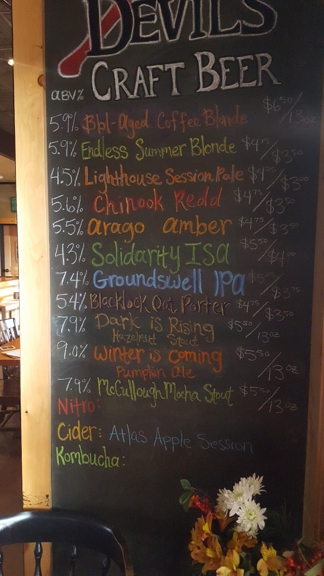 DEVILS
CRAFT BEER
ABV%
5.9% Bbl-Aged Coffee Blonde $6.50/13oz
5.9% Endless Summer Blonde $4.75/$3.50
4.5% Lighthouse Session Pale $4.75/
5.6% Chinook Redd $4.75/$3.50
5.5% arago amber $4.75/$3.50
4.3% Solidarity ISA
7.4% Groundswell IPA /$3.75
5.4% Blacklock Oat Porter $4.75/$3.50
7.9% Dark is Rising $5.50/13oz
Hazelnut Stout
9.0% Winter is Coming $5.50/13oz
Pumpkin Ale
7.9% McCullough Mocha Stout /13oz
Nitro:
Cider: Atlas Apple Session
Kombucha: